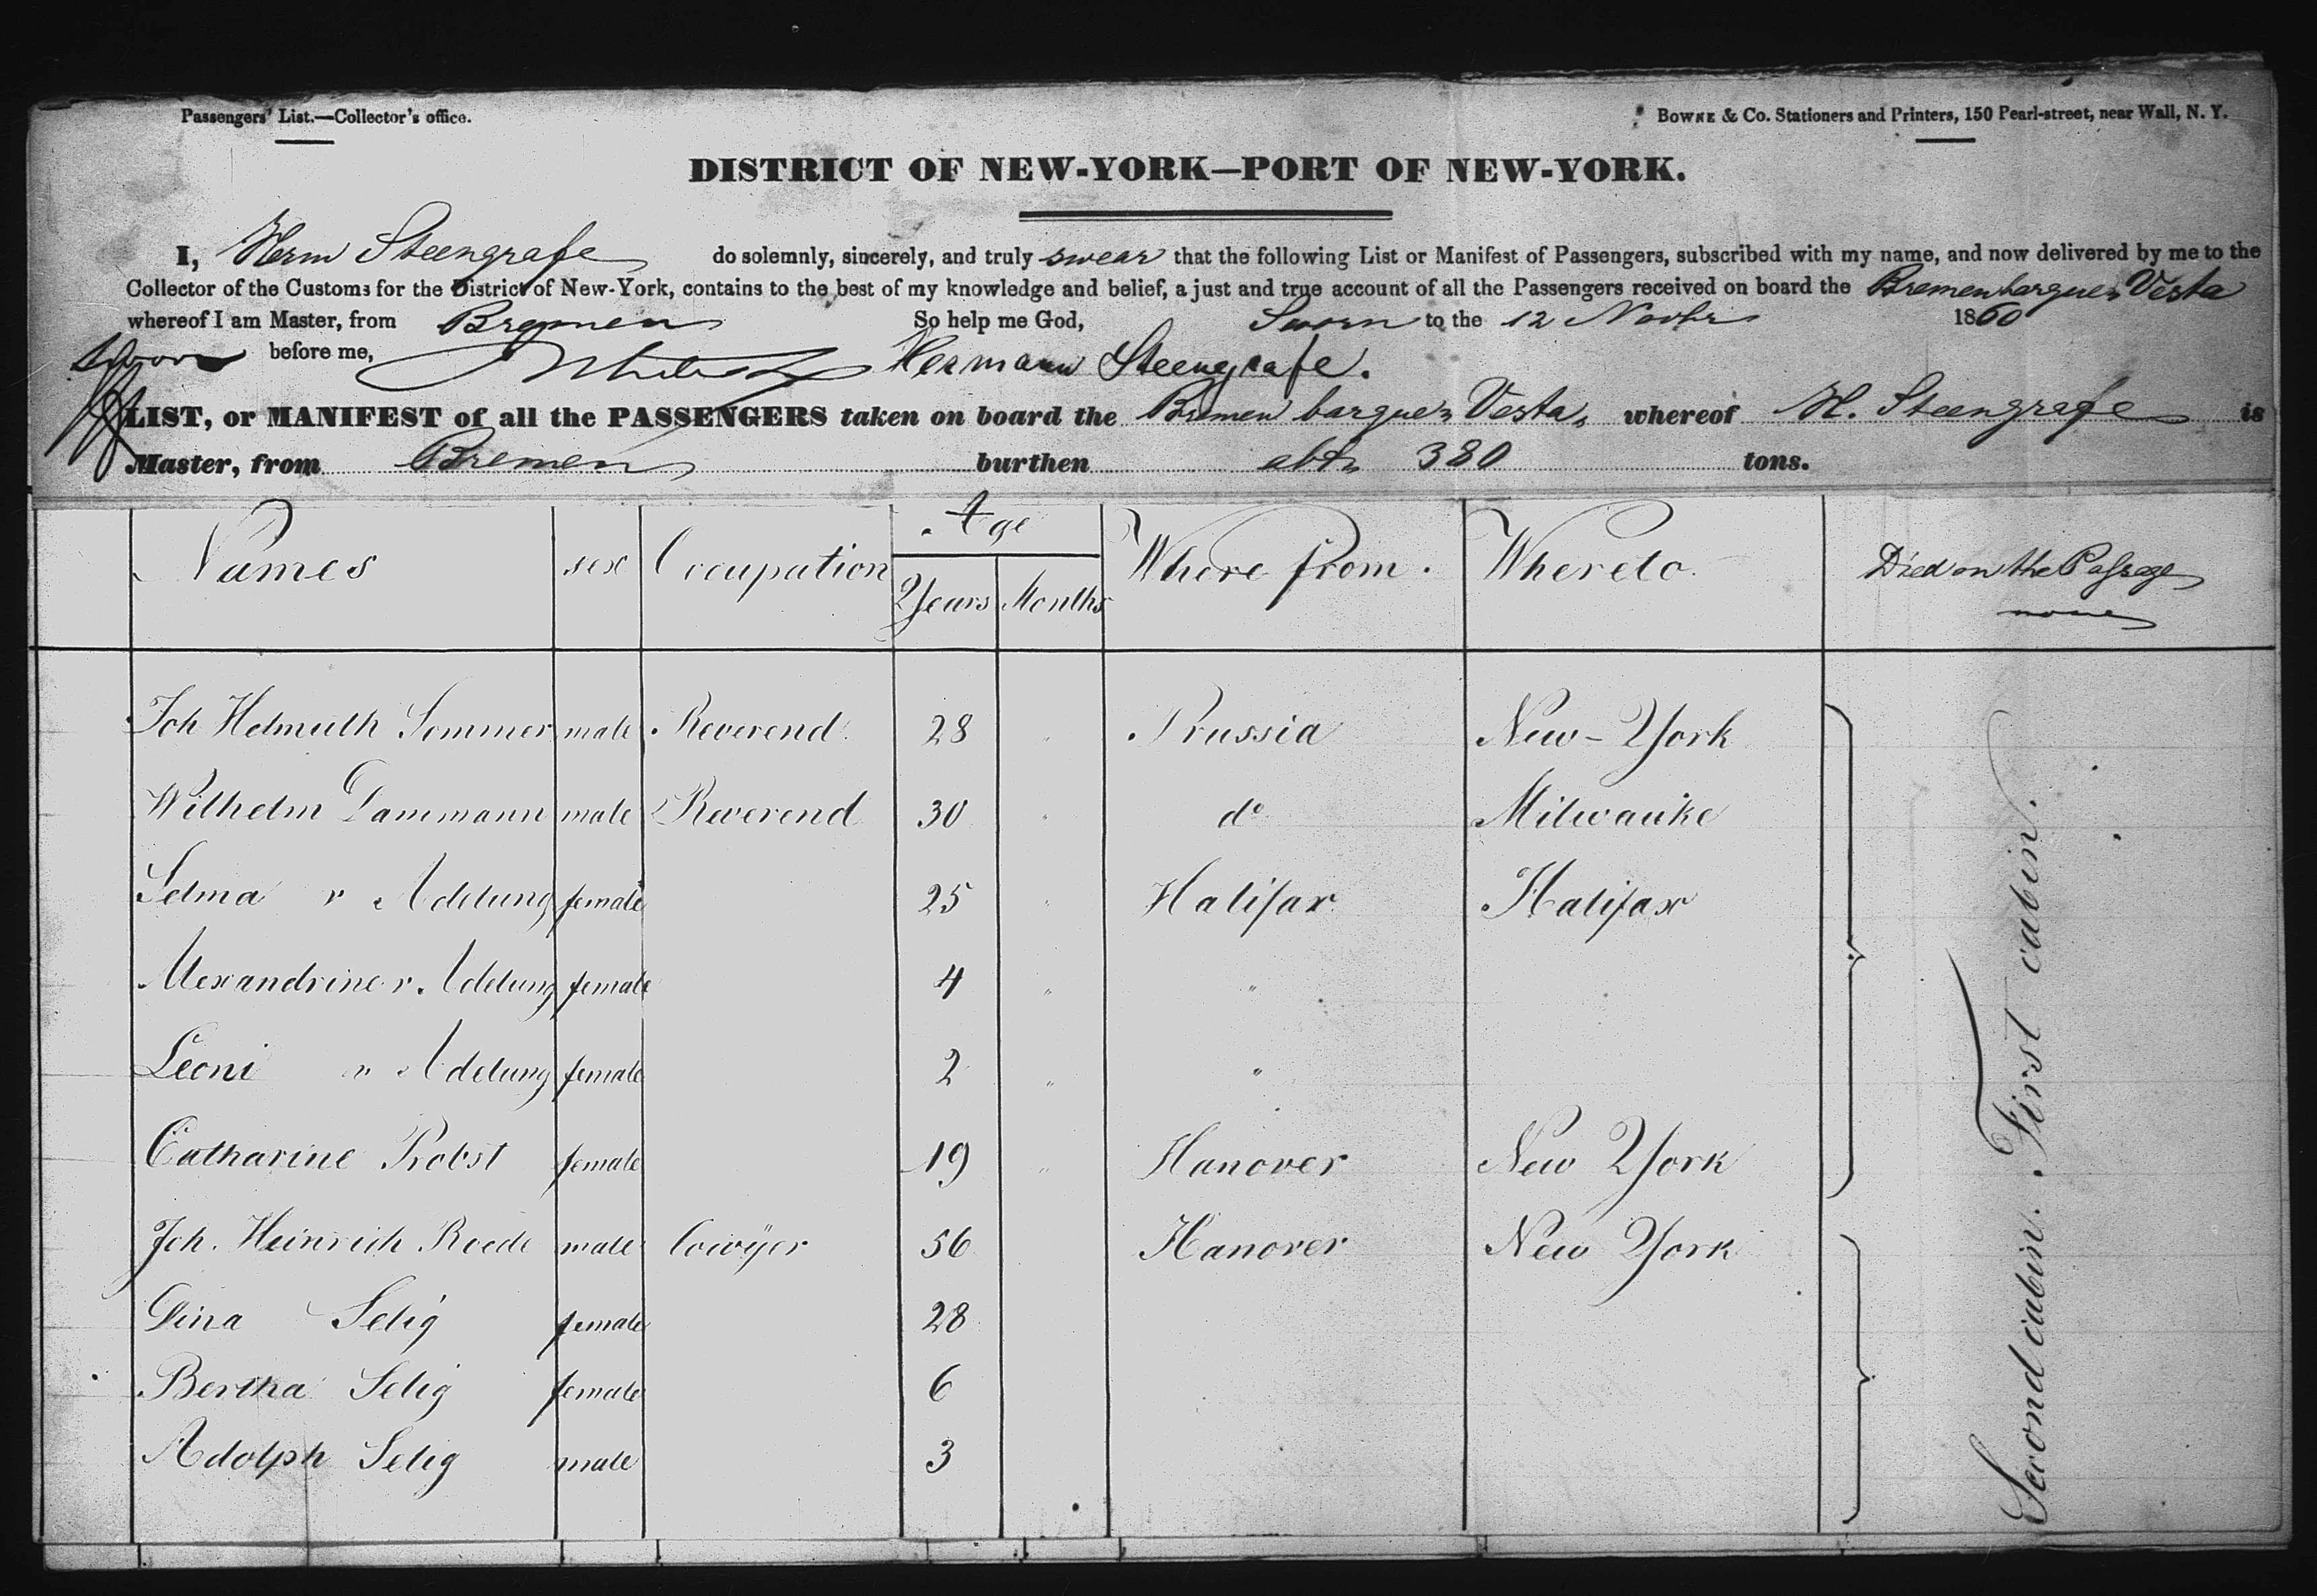 Passengers' List.—Collector's office.
BOWNE & Co. Stationers and Printers, 150 Pearl-street, near Wall, N. Y.
DISTRICT OF NEW-YORK—PORT OF NEW-YORK.
I, Herm Steengrafe do solemnly, sincerely, and truly swear that the following List or Manifest of Passengers, subscribed with my name, and now delivered by me to the
Collector of the Customs for the District of New-York, contains to the best of my knowledge and belief, a just and true account of all the Passengers received on board the Bremen barque „Vesta
whereof I am Master, from Bremen So help me God, Sworn to the 12 Novbr 1860
Sworn before me, Hermann Steengrafe.
LIST, or MANIFEST of all the PASSENGERS taken on board the Bremen barque „Vesta„ whereof H. Steengrafe is
Master, from Bremen burthen abt„ 380 tons.
Names sex Occupation Age Years Months Where from. Whereto. Died on the Passage
none
Joh Helmuth Sommer male Reverend. 28 " Prussia New-York
Wilhelm Dammann male Reverend 30 " do Milwauke
Selma v Adelung female 25 " Halifax Halifax
Alexandrine v. Adelung female 4 " "
Leoni v Adelung female 2 " "
Catharine Probst female 19 " Hanover New York
Joh. Heinrich Roede male Cowÿer 56 Hanover New York
Dina Selig female 28
Bertha Selig female 6
Adolph Selig male 3
First cabin.
Second cabin.